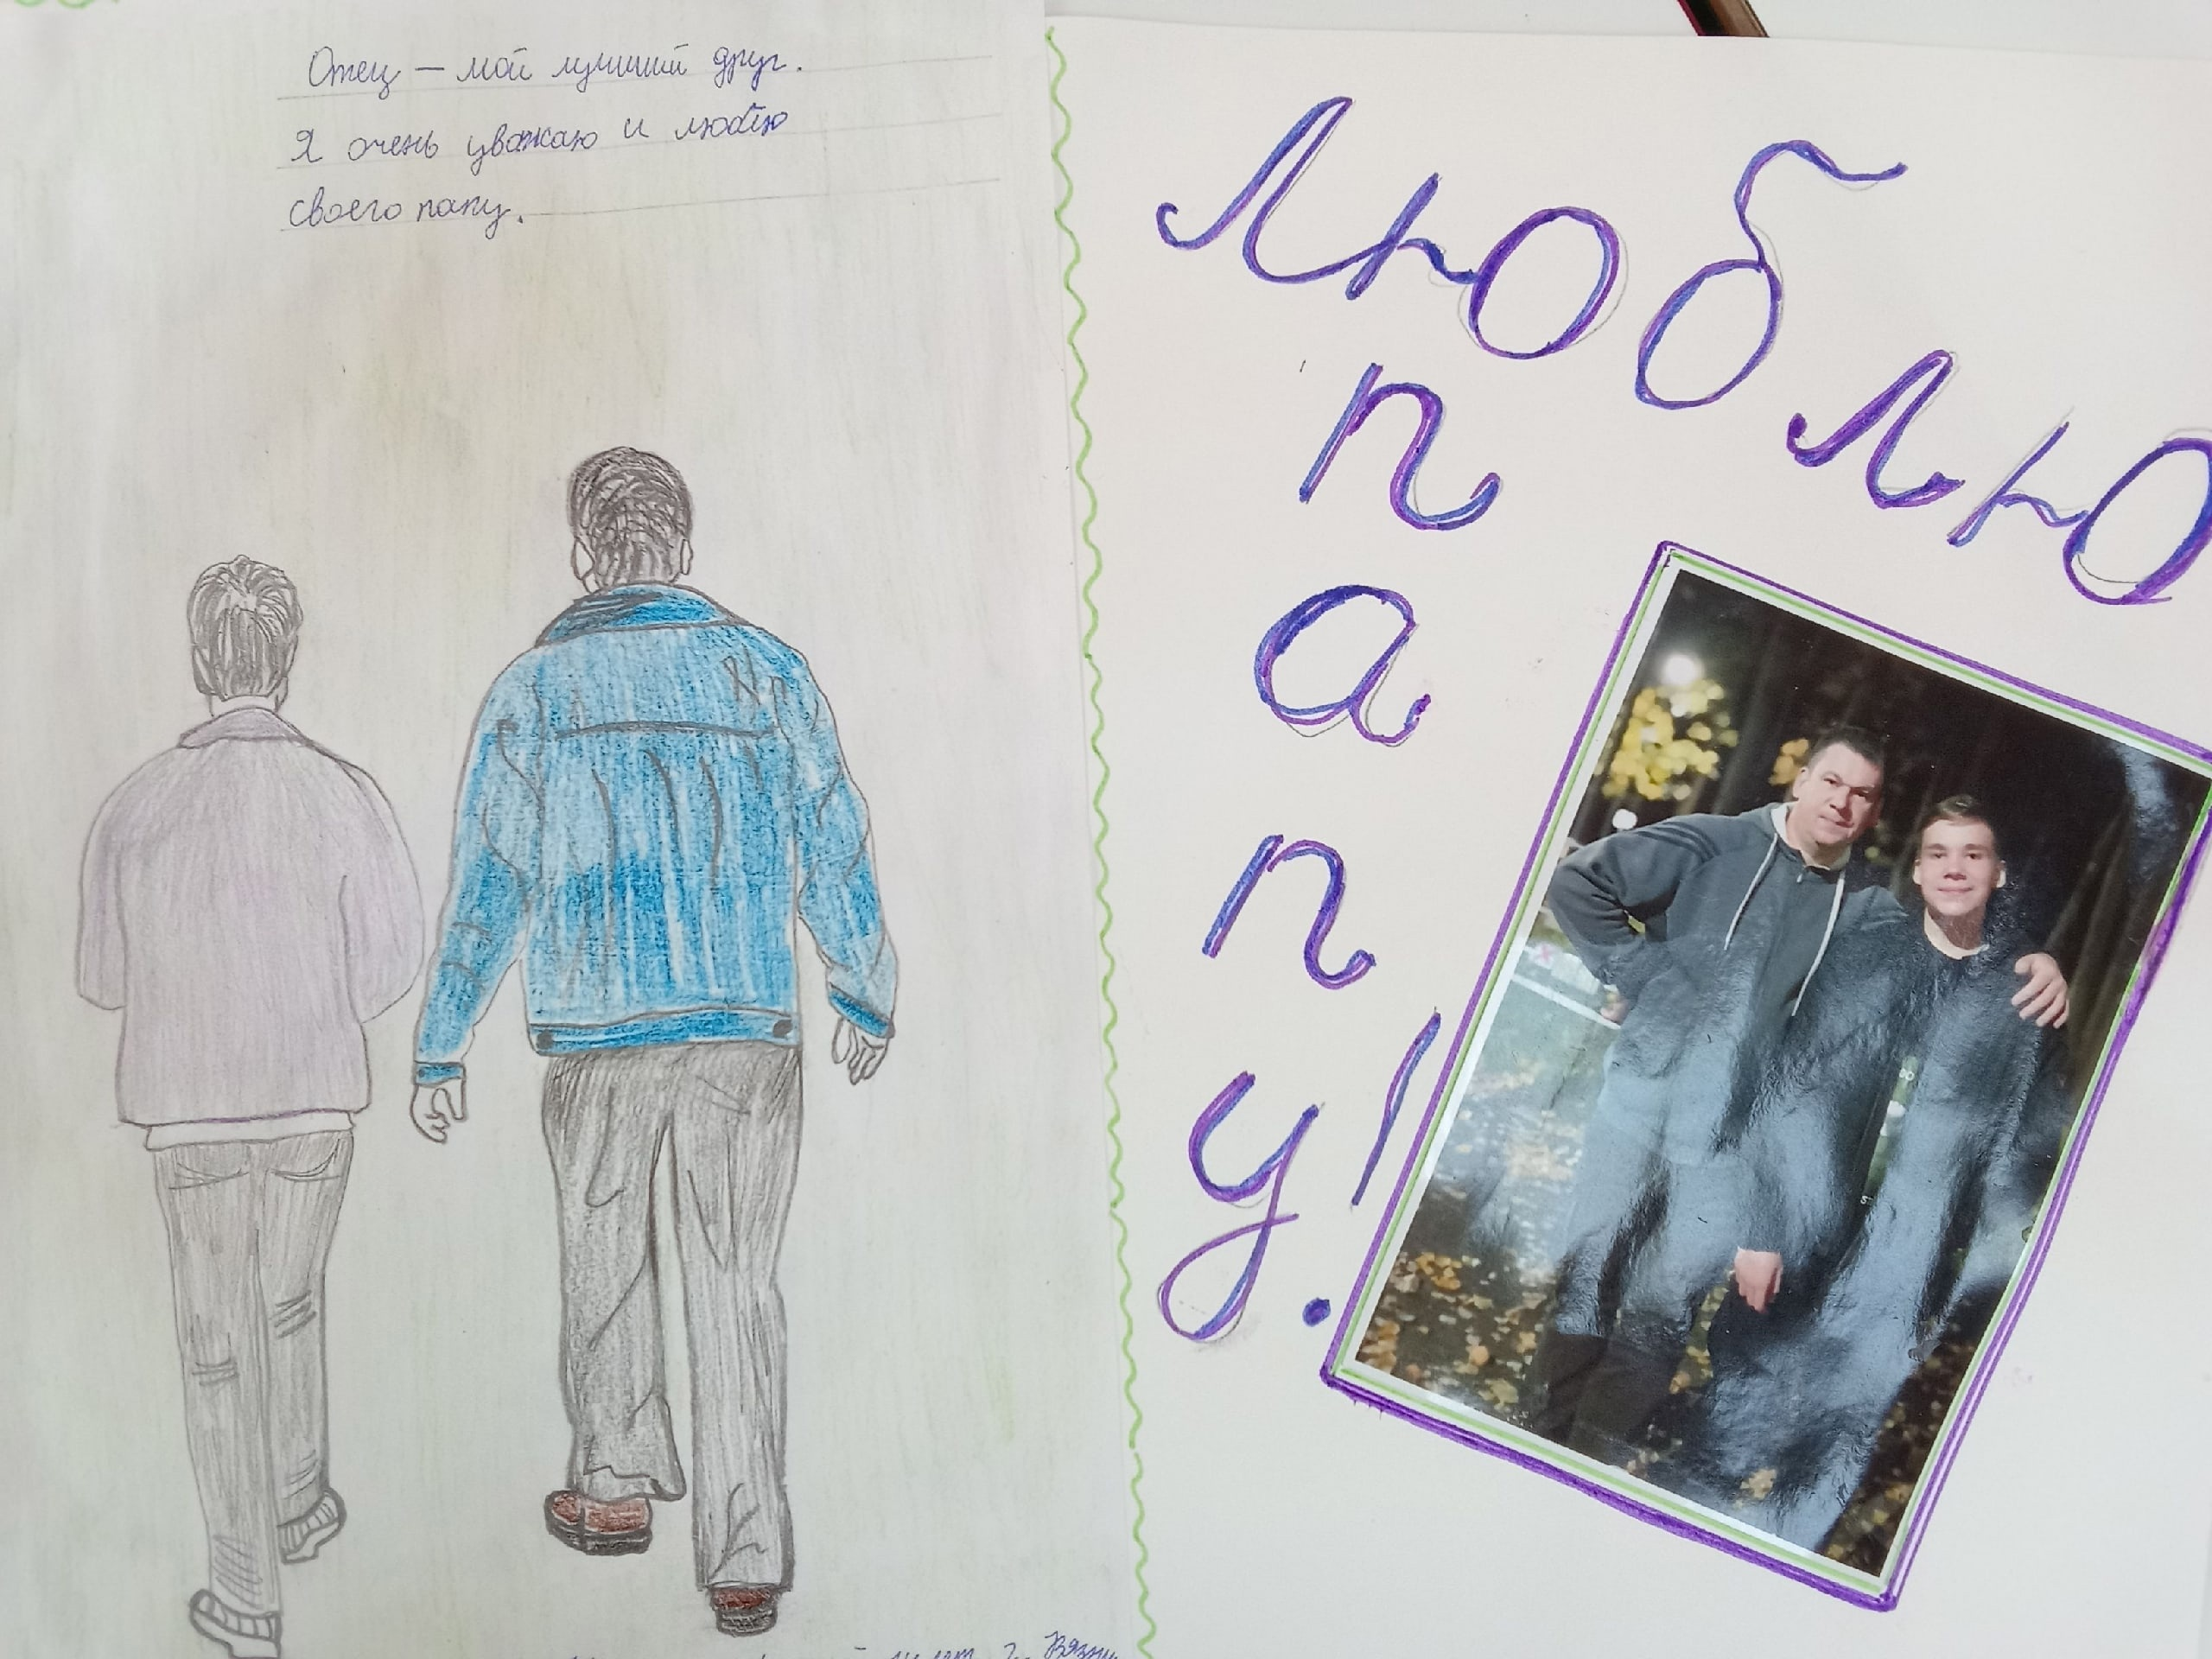 Отец — мой лучший друг.
Я очень уважаю и люблю
своего папу.
Люблю
папу!